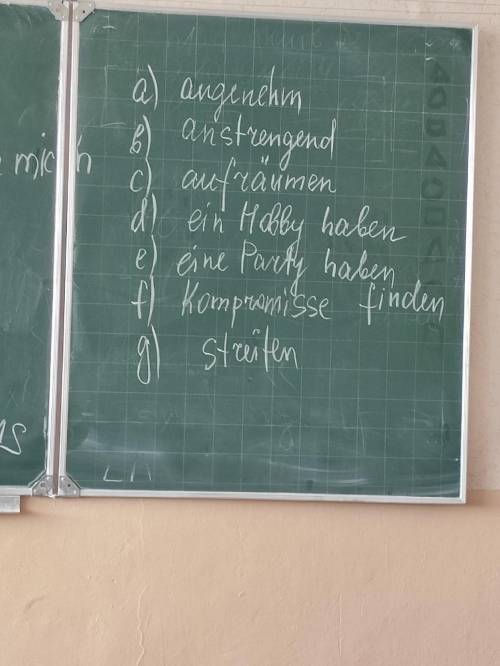 a) angenehm
b) anstrengend
c) aufräumen
d) ein Hobby haben
e) eine Party haben
f) Kompromisse finden
g) streiten